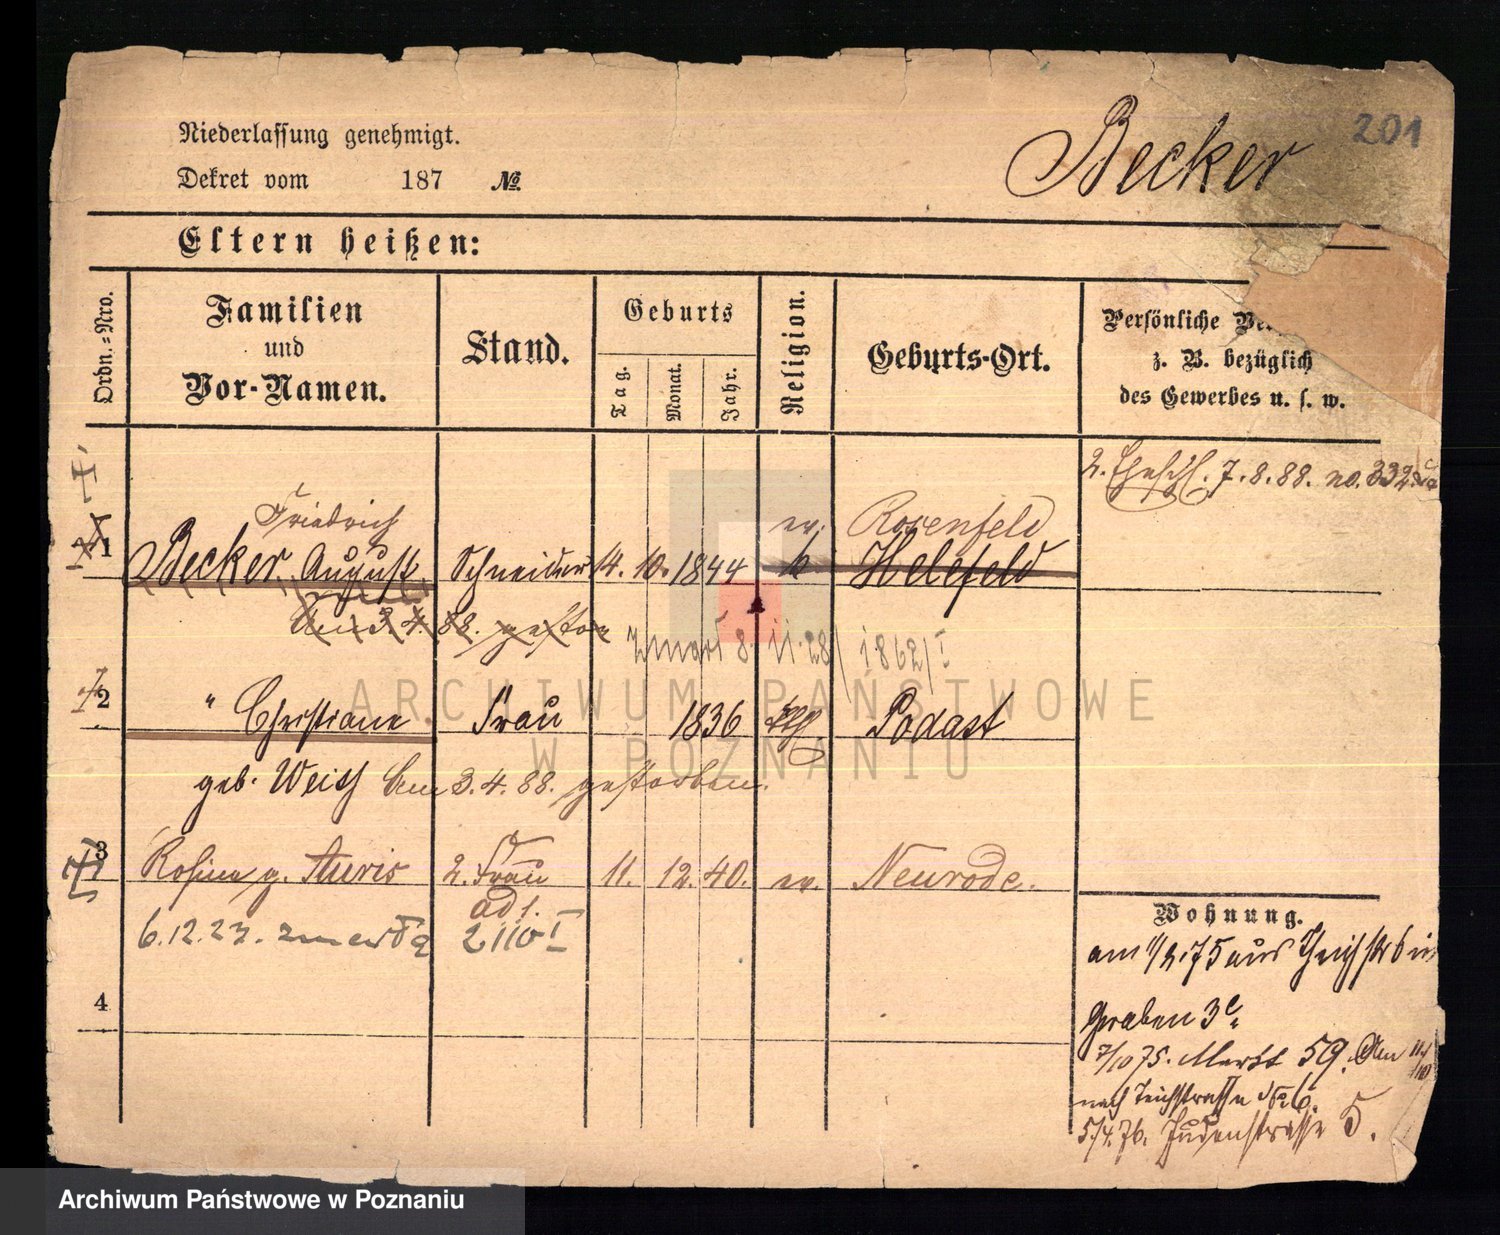 201
Becker
Niederlassung genehmigt.
Dekret vom 187 №
Eltern heißen:
Ordn.-Nro.
Familien und Vor-Namen.
Stand.
Geburts
Tag.
Monat.
Jahr.
Religion.
Geburts-Ort.
Persönliche
z. B. bezüglich
des Gewerbes u. s. w.
2. Eheschl. 7.8.88. no. 332
Friedrich ev. Rosenfeld
1 Becker August Schneider 14. 10. 1844 k Helefeld
Am 3.4.88. gestor
zmarł 8.11.28/ 1862/I
2 " Christiane Frau 1836 Podast
geb. Weiss Am 3.4.88. gestorben.
3 Rosina g. Auris 2. Frau 11. 12. 40. ev. Neurode.
ad 1.
6.12.27. zmarła 2110 I
4
Wohnung.
am 1/2.75 aus Teichstr 6 in
Graben 3c.
7/10 75. Markt 59. Am 11/10
nach Teichstrasse № 6.
5/4.76. Judenstrasse 5.
ARCHIWUM PAŃSTWOWE
W POZNANIU
Archiwum Państwowe w Poznaniu